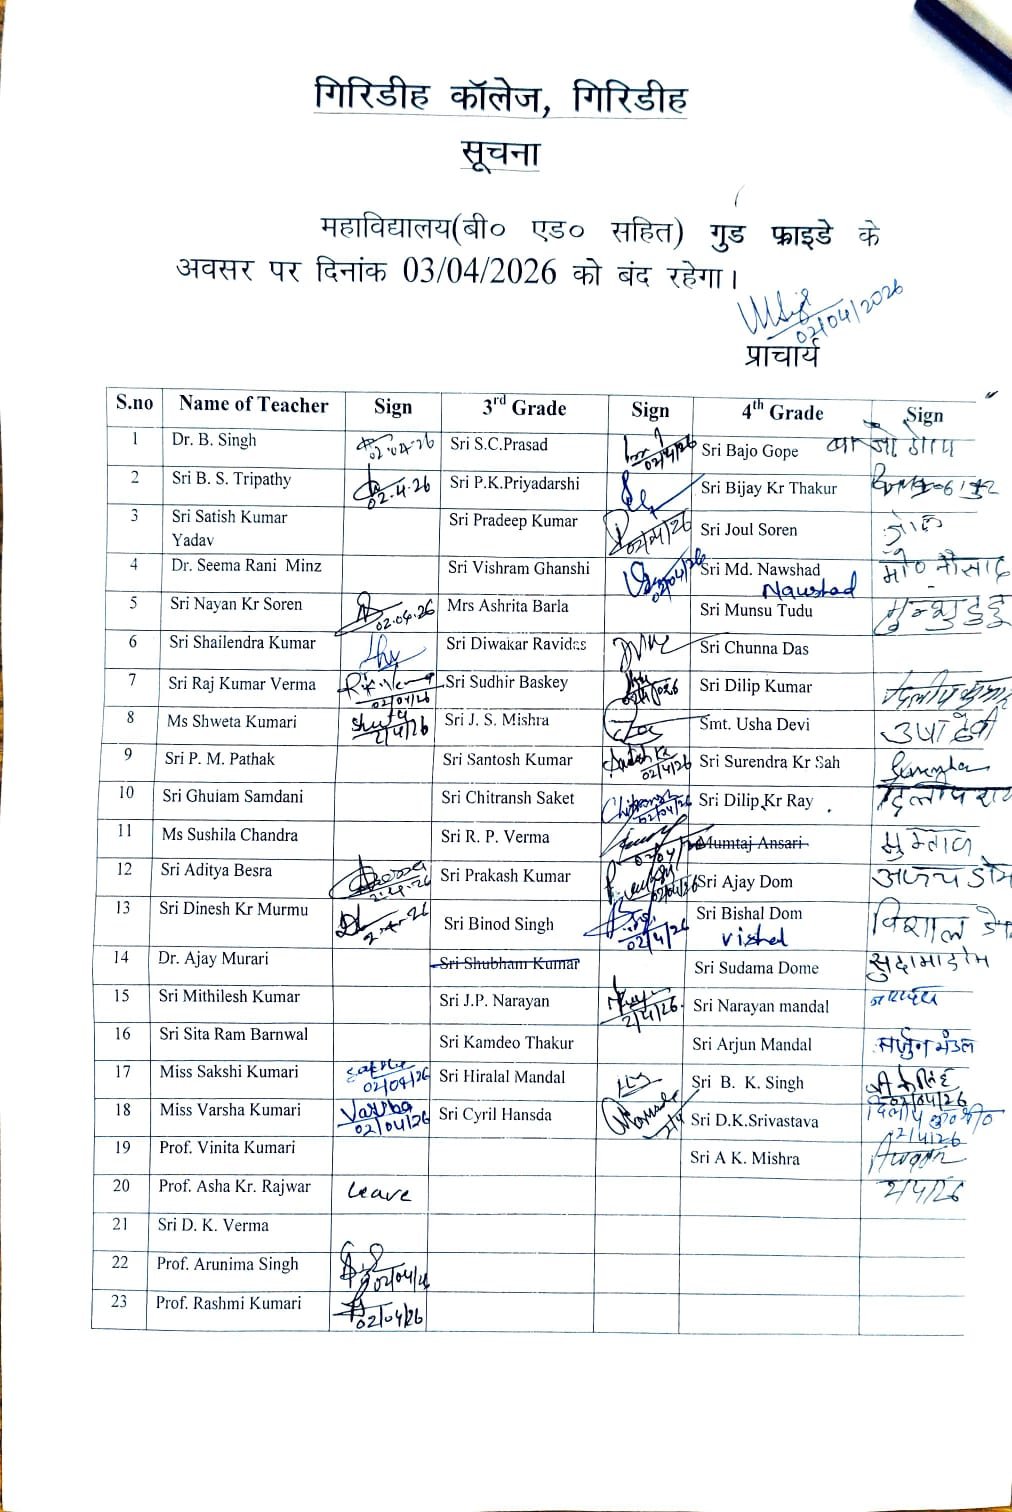 गिरिडीह कॉलेज, गिरिडीह
सूचना
महाविद्यालय(बी० एड० सहित) गुड फ्राइडे के
अवसर पर दिनांक 03/04/2026 को बंद रहेगा।
02/04/2026
प्राचार्य
S.no Name of Teacher Sign 3rd Grade Sign 4th Grade Sign
1 Dr. B. Singh 02.04.26 Sri S.C.Prasad 02/4/26 Sri Bajo Gope बाजो गोप
2 Sri B. S. Tripathy 02.4.26 Sri P.K.Priyadarshi Sri Bijay Kr Thakur
3 Sri Satish Kumar Yadav Sri Pradeep Kumar 02/04/26 Sri Joul Soren
4 Dr. Seema Rani Minz Sri Vishram Ghanshi Sri Md. Nawshad Naushad मो० नौसाद
5 Sri Nayan Kr Soren 02.04.26 Mrs Ashrita Barla Sri Munsu Tudu
6 Sri Shailendra Kumar Sri Diwakar Ravidas Sri Chunna Das
7 Sri Raj Kumar Verma 02/04/26 Sri Sudhir Baskey Sri Dilip Kumar
8 Ms Shweta Kumari 2/4/26 Sri J. S. Mishra Smt. Usha Devi उषा देवी
9 Sri P. M. Pathak Sri Santosh Kumar 02/4/26 Sri Surendra Kr Sah
10 Sri Ghulam Samdani Sri Chitransh Saket 02/04/26 Sri Dilip Kr Ray दिलीप राय
11 Ms Sushila Chandra Sri R. P. Verma Mumtaj Ansari मुम्ताज
12 Sri Aditya Besra 2.04.26 Sri Prakash Kumar 02/04/26 Sri Ajay Dom अजय डोम
13 Sri Dinesh Kr Murmu Sri Binod Singh 02/4/26 Sri Bishal Dom Vishal विशाल डोम
14 Dr. Ajay Murari Sri Shubham Kumar Sri Sudama Dome सुदामा डोम
15 Sri Mithilesh Kumar Sri J.P. Narayan 2/4/26 Sri Narayan mandal
16 Sri Sita Ram Barnwal Sri Kamdeo Thakur Sri Arjun Mandal अर्जुन मंडल
17 Miss Sakshi Kumari 02/04/26 Sri Hiralal Mandal Sri B. K. Singh 02/04/26
18 Miss Varsha Kumari Varsha 02/04/26 Sri Cyril Hansda Sri D.K.Srivastava 2/4/26
19 Prof. Vinita Kumari Sri A K. Mishra
20 Prof. Asha Kr. Rajwar Leave 2/4/26
21 Sri D. K. Verma
22 Prof. Arunima Singh 02/04/26
23 Prof. Rashmi Kumari 02/04/26